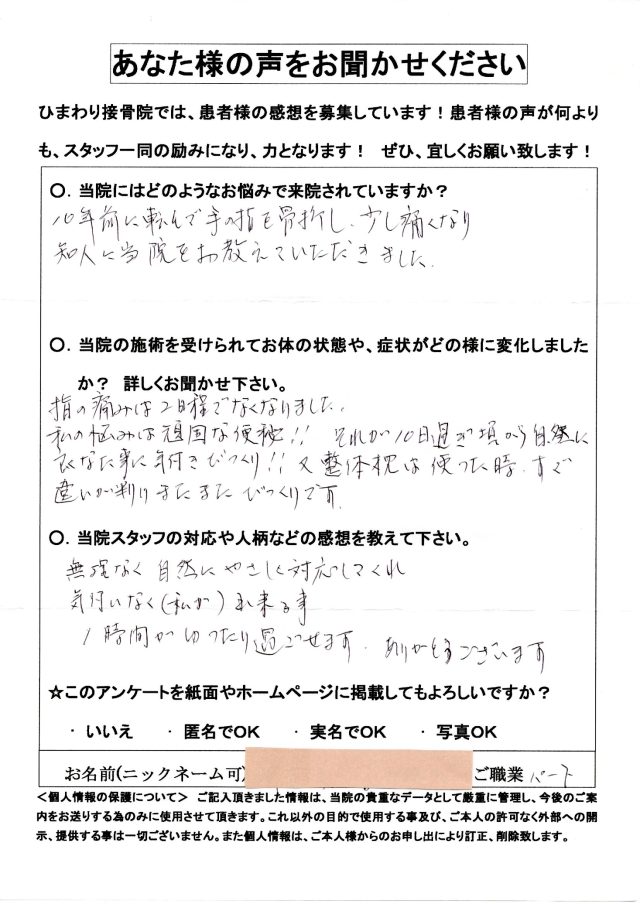 あなた様の声をお聞かせください
ひまわり接骨院では、患者様の感想を募集しています！患者様の声が何より
も、スタッフ一同の励みになり、力となります！　ぜひ、宜しくお願い致します！
〇．当院にはどのようなお悩みで来院されていますか？
10年前に転んで手の指を骨折し、少し痛くなり
知人に当院をお教えていただきました。
〇．当院の施術を受けられてお体の状態や、症状がどの様に変化しました
か？　詳しくお聞かせ下さい。
指の痛みは2日程でなくなりました、
私の悩みは頑固な便秘!!　それが10日過ぎ頃から自然に
なた事に気付きびっくり!!又整体枕は使った時、すぐ
違いが判りまたまたびっくりです。
〇．当院スタッフの対応や人柄などの感想を教えて下さい。
無理なく自然にやさしく対応してくれ
気付いなく(私が)出来る事
1時間がゆったり過ごせます。ありがとうございます
☆このアンケートを紙面やホームページに掲載してもよろしいですか？
・いいえ　・匿名でOK　・実名でOK　・写真OK
お名前(ニックネーム可)　ご職業 パート
＜個人情報の保護について＞　ご記入頂きました情報は、当院の貴重なデータとして厳重に管理し、今後のご案
内をお送りする為のみに使用させて頂きます。これ以外の目的で使用する事及び、ご本人の許可なく外部への開
示、提供する事は一切ございません。また個人情報は、ご本人様からのお申し出により訂正、削除致します。